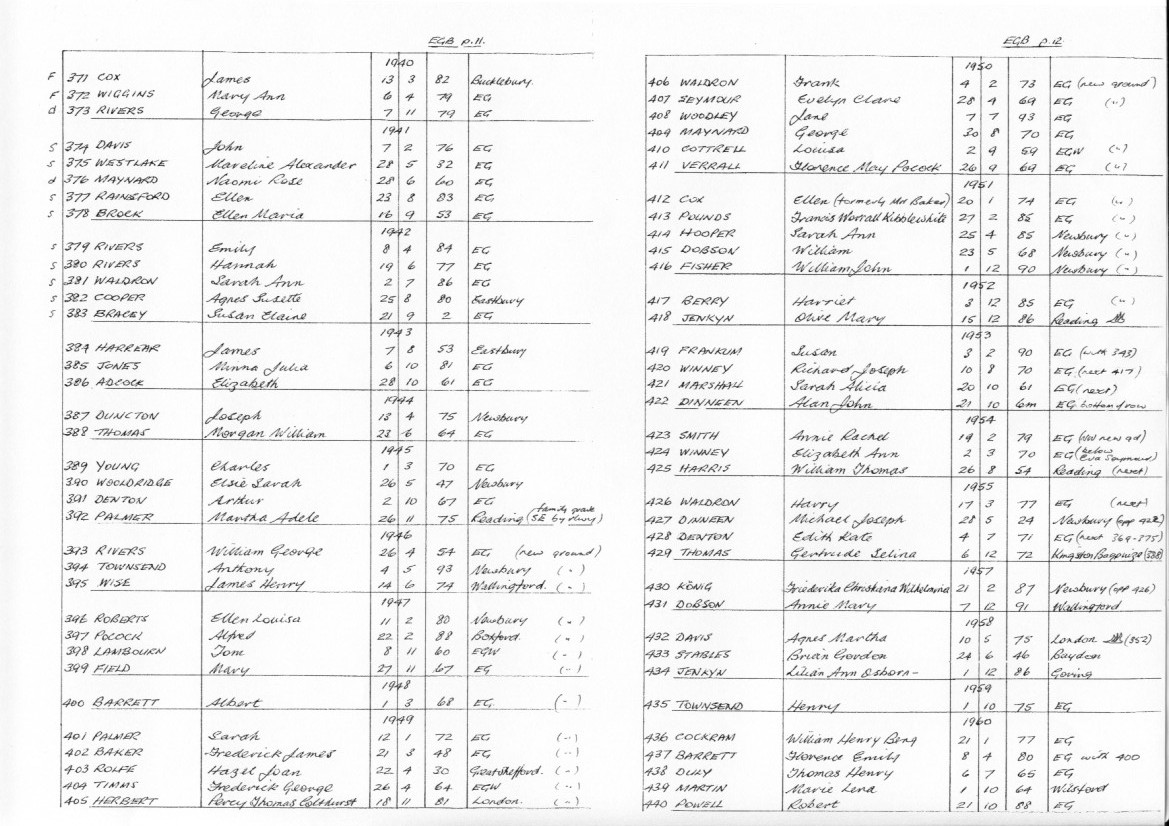 EGB p.11.
1940
F 371 COX James 13 3 82 Bucklebury.
F 372 WIGGINS Mary Ann 6 4 79 EG
d 373 RIVERS George 7 11 79 EG
1941
S 374 DAVIS John 7 2 76 EG
S 375 WESTLAKE Maveline Alexander 28 5 32 EG
d 376 MAYNARD Naomi Rose 28 6 60 EG
S 377 RAINSFORD Ellen 23 8 83 EG
S 378 BROCK Ellen Maria 16 9 53 EG
1942
S 379 RIVERS Emily 8 4 84 EG
S 380 RIVERS Hannah 19 6 77 EG
S 381 WALDRON Sarah Ann 2 7 86 EG
S 382 COOPER Agnes Susette 25 8 80 Eastbury
S 383 BRACEY Susan Elaine 21 9 2 EG
1943
384 HARREAR James 7 8 53 Eastbury
385 JONES Minna Julia 6 10 81 EG
386 ADCOCK Elizabeth 28 10 61 EG
1944
387 DUNCTON Joseph 13 4 75 Newbury
388 THOMAS Morgan William 23 6 64 EG
1945
389 YOUNG Charles 1 3 70 EG
390 WOOLDRIDGE Elsie Sarah 26 5 47 Newbury
391 DENTON Arthur 2 10 67 EG
392 PALMER Martha Adele 26 11 75 Reading (family grave SE by rlwy)
1946
393 RIVERS William George 26 4 54 EG (new ground)
394 TOWNSEND Anthony 4 5 93 Newbury ( " )
395 WISE James Henry 14 6 74 Wallingford. ( " )
1947
396 ROBERTS Ellen Louisa 11 2 80 Newbury ( " )
397 POCOCK Alfred 22 2 88 Boxford. ( " )
398 LAMBOURN Tom 8 11 60 EGW ( " )
399 FIELD Mary 27 11 67 EG ( " )
1948
400 BARRETT Albert 1 3 68 EG ( " )
1949
401 PALMER Sarah 12 1 72 EG ( " )
402 BAKER Frederick James 21 3 48 EG ( " )
403 ROLFE Hazel Joan 22 4 30 Great Shefford. ( " )
404 TIMMS Frederick George 26 4 64 EGW ( " )
405 HERBERT Percy Thomas Colthurst 18 11 81 London. ( " )
EGB p.12
1950
406 WALDRON Frank 4 2 73 EG (new ground)
407 SEYMOUR Evelyn Clare 28 4 69 EG ( " )
408 WOODLEY Jane 7 7 93 EG
409 MAYNARD George 30 8 70 EG
410 COTTRELL Louisa 2 9 59 EGW ( " )
411 VERRALL Florence May Pocock 26 9 69 EG ( " )
1951
412 COX Ellen (formerly Mrs Baker) 20 1 74 EG ( " )
413 POUNDS Francis Worrall Kibblewhite 27 2 85 EG ( " )
414 HOOPER Sarah Ann 25 4 85 Newbury ( " )
415 DOBSON William 23 5 68 Newbury ( " )
416 FISHER William John 1 12 90 Newbury ( " )
1952
417 BERRY Harriet 3 12 85 EG ( " )
418 JENKYN Olive Mary 15 12 86 Reading
1953
419 FRANKUM Susan 3 2 90 EG (with 343)
420 WINNEY Richard Joseph 10 8 70 EG (next 417)
421 MARSHALL Sarah Alicia 20 10 61 EG (next)
422 DINNEEN Alan John 21 10 6m EG bottom row
1954
423 SMITH Annie Rachel 19 2 79 EG (NW new gd)
424 WINNEY Elizabeth Ann 2 3 70 EG (below Eva Seymour)
425 HARRIS William Thomas 26 8 54 Reading (next)
1955
426 WALDRON Harry 17 3 77 EG (next)
427 DINNEEN Michael Joseph 28 5 24 Newbury (opp 422)
428 DENTON Edith Kate 4 7 71 EG (next 369-375)
429 THOMAS Gertrude Selina 6 12 72 Kingston Bagpuize (388)
1957
430 KÖNIG Friederika Christiana Wilhelmina 21 2 87 Newbury (opp 426)
431 DOBSON Annie Mary 7 12 91 Wallingford
1958
432 DAVIS Agnes Martha 10 5 75 London (352)
433 STABLES Brian Gordon 24 6 46 Baydon
434 JENKYN Lilian Ann Osborn- 1 12 86 Goring
1959
435 TOWNSEND Henry 1 10 75 EG
1960
436 COCKRAM William Henry Benj 21 1 77 EG
437 BARRETT Florence Emily 8 4 80 EG with 400
438 DULY Thomas Henry 6 7 65 EG
439 MARTIN Marie Lena 1 10 64 Wilsford
440 POWELL Robert 21 10 88 EG